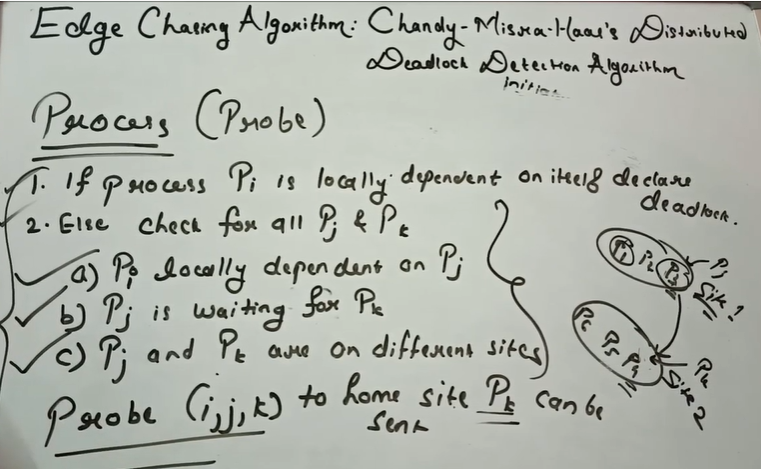 Edge Chasing Algorithm: Chandy-Misra-Haas's Distributed
Deadlock Detection Algorithm
Process (Probe)
1. If process Pi is locally dependent on itself declare
deadlock.
2. Else check for all Pj & Pk
a) Pi locally dependent on Pj
b) Pj is waiting for Pk
c) Pj and Pk are on different sites
Probe (i,j,k) to home site Pk can be
sent
P1 P2 P3
Pj
Site 1
P6 P5 P4
Pk
Site 2